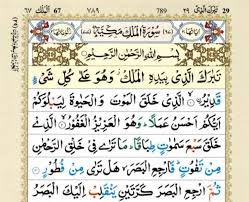 ٦٧ الملك 67 ٧٨٩ 789 تبٰرك الذی ٢٩ 29
سُوْرَةُ الْمُلْكِ مَكِّيَّةٌ
بِسْمِ اللّٰهِ الرَّحْمٰنِ الرَّحِيْمِ
تَبٰرَكَ الَّذِيْ بِيَدِهِ الْمُلْكُ وَهُوَ عَلٰى كُلِّ شَيْءٍ
قَدِيْرُ ۙ الَّذِيْ خَلَقَ الْمَوْتَ وَالْحَيٰوةَ لِيَبْلُوَكُمْ
اَيُّكُمْ اَحْسَنُ عَمَلًا ؕ وَهُوَ الْعَزِيْزُ الْغَفُوْرُ ۙ الَّذِيْ
خَلَقَ سَبْعَ سَمٰوٰتٍ طِبَاقًا ؕ مَا تَرٰى فِيْ خَلْقِ الرَّحْمٰنِ
مِنْ تَفٰوُتٍ ؕ فَارْجِعِ الْبَصَرَ ۙ هَلْ تَرٰى مِنْ فُطُوْرٍ
ثُمَّ ارْجِعِ الْبَصَرَ كَرَّتَيْنِ يَنْقَلِبْ اِلَيْكَ الْبَصَرُ